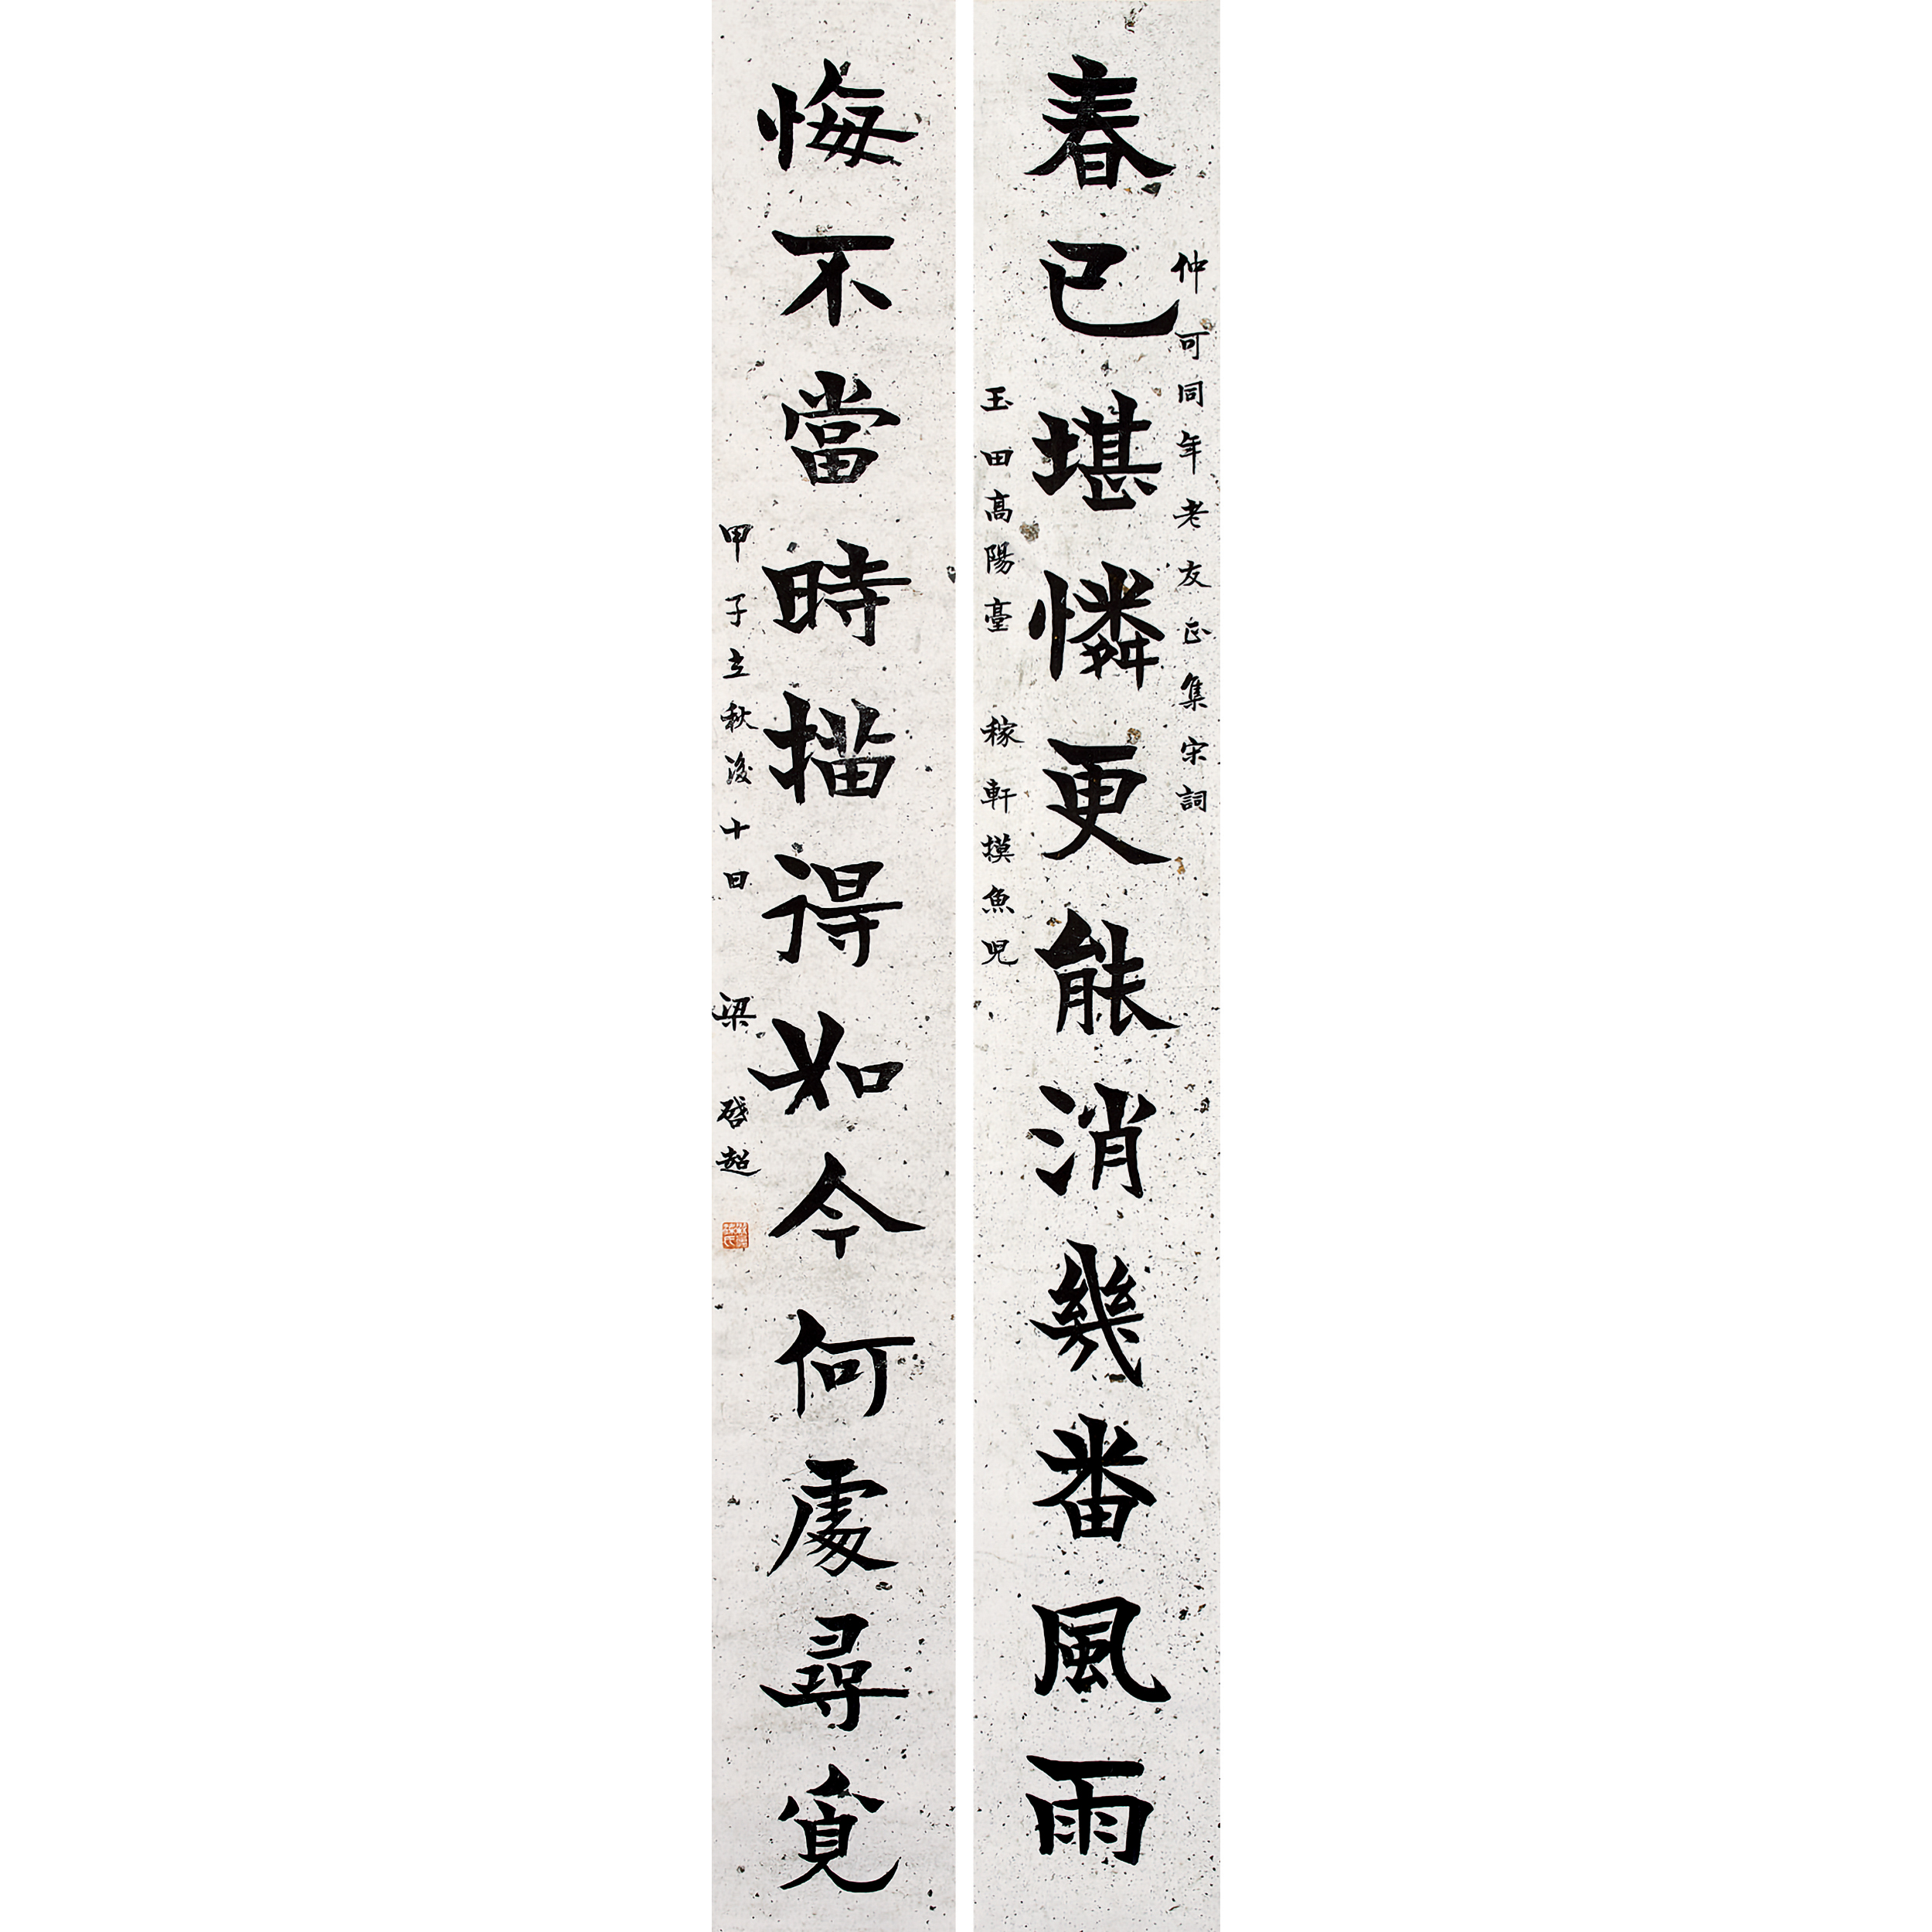 春已堪憐更能消幾番風雨
仲可同年老友正集宋詞
玉田高陽臺 稼軒摸魚兒
悔不當時描得如今何處尋覓
甲子立秋後十日 梁啓超